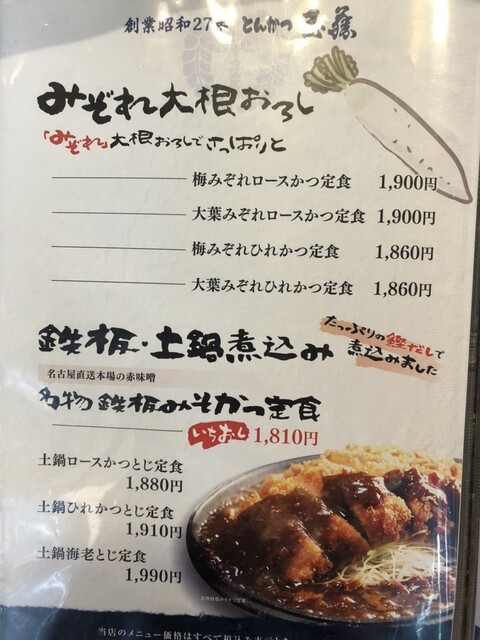 創業昭和27年 とんかつ 玉藤
みぞれ大根おろし
「みぞれ」大根おろしでさっぱりと
梅みぞれロースかつ定食 1,900円
大葉みぞれロースかつ定食 1,900円
梅みぞれひれかつ定食 1,860円
大葉みぞれひれかつ定食 1,860円
鉄板・土鍋煮込み
たっぷりの鰹だしで
煮込みました
名古屋直送本場の赤味噌
名物 鉄板みそかつ定食
いちおし 1,810円
土鍋ロースかつとじ定食
1,880円
土鍋ひれかつとじ定食
1,910円
土鍋海老とじ定食
1,990円
名物鉄板みそかつ定食
当店のメニュー価格はすべて税込み表示